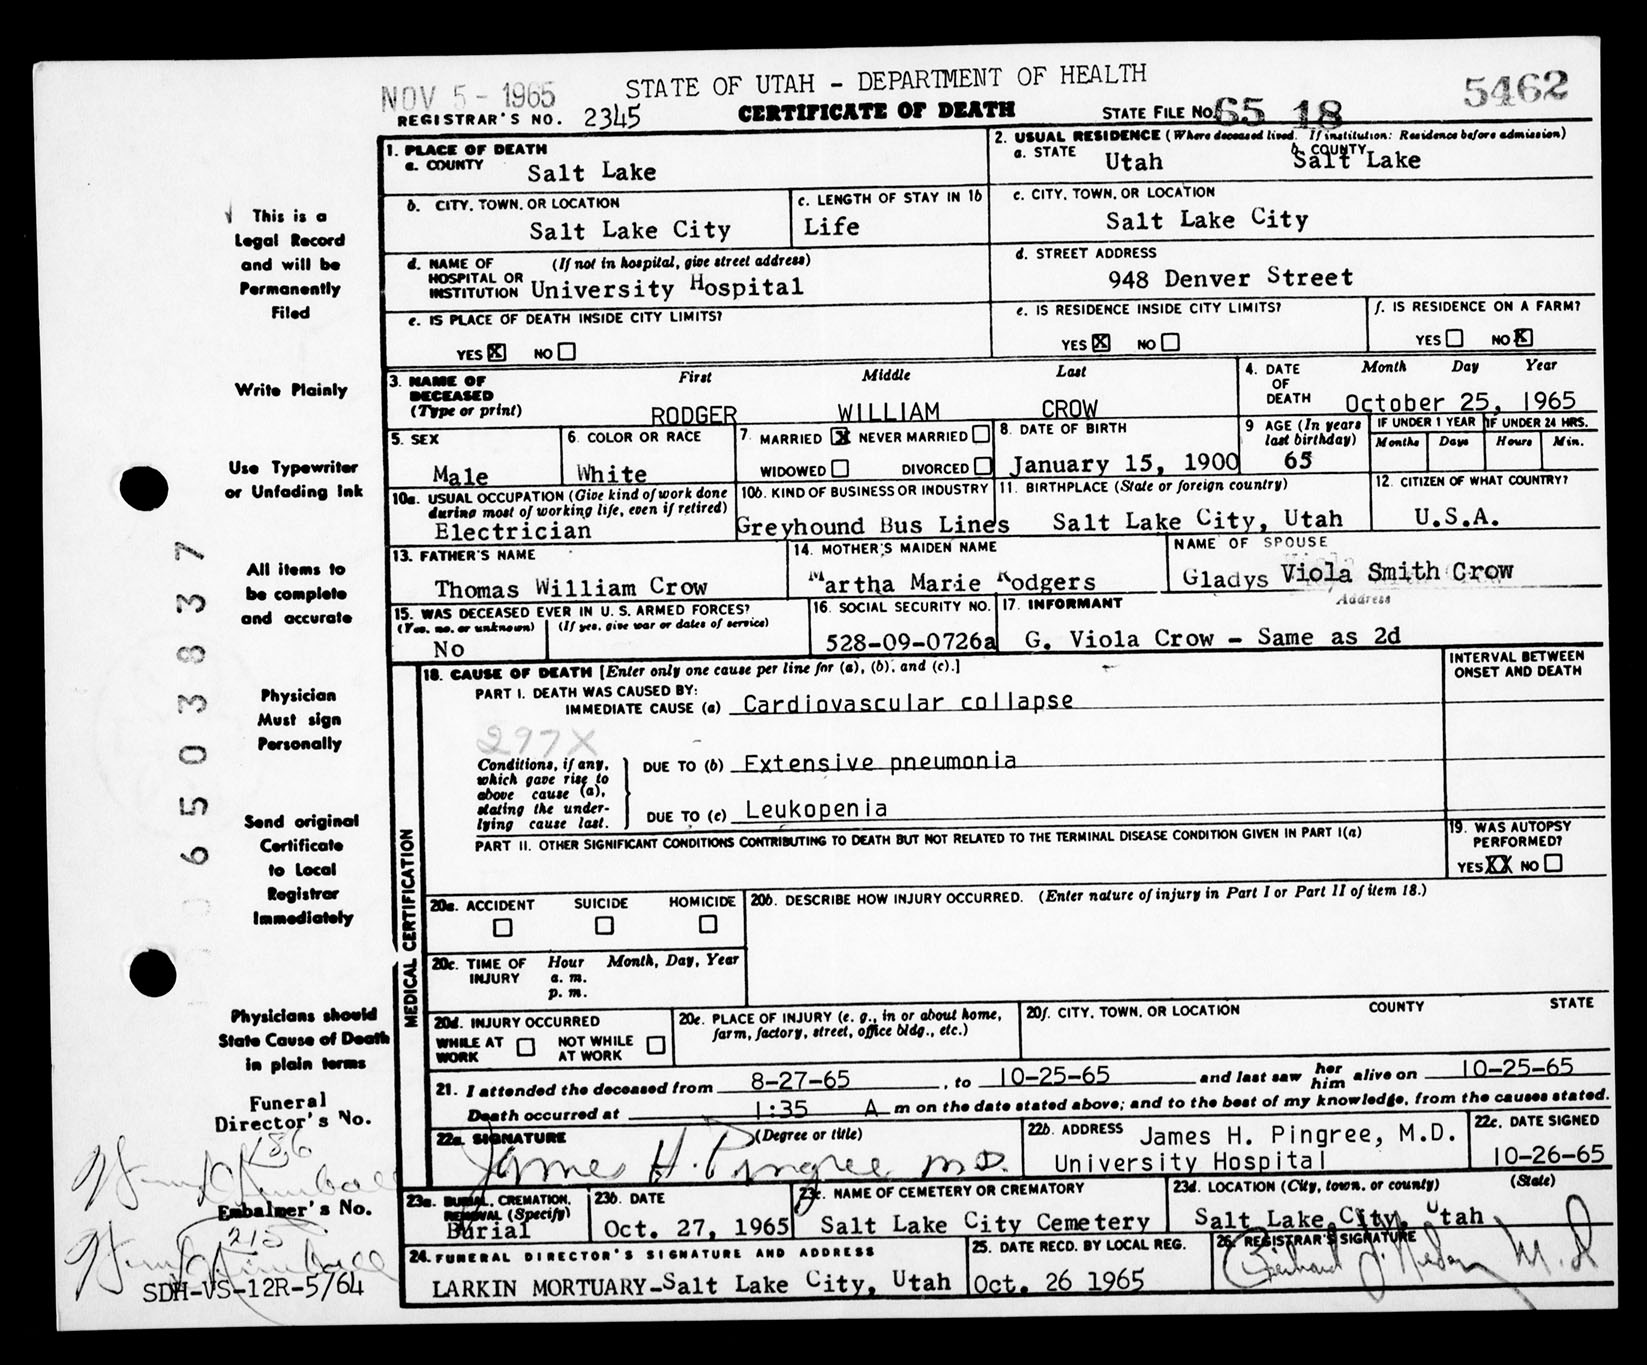 NOV 5 - 1965
STATE OF UTAH - DEPARTMENT OF HEALTH
5462
REGISTRAR'S NO. 2345
CERTIFICATE OF DEATH
STATE FILE NO. 65 18
1. PLACE OF DEATH
a. COUNTY Salt Lake
2. USUAL RESIDENCE (Where deceased lived. If institution: Residence before admission)
a. STATE Utah b. COUNTY Salt Lake
b. CITY, TOWN, OR LOCATION
Salt Lake City
c. LENGTH OF STAY IN 1b
Life
c. CITY, TOWN, OR LOCATION
Salt Lake City
d. NAME OF HOSPITAL OR INSTITUTION (If not in hospital, give street address)
University Hospital
d. STREET ADDRESS
948 Denver Street
e. IS PLACE OF DEATH INSIDE CITY LIMITS?
YES X NO
e. IS RESIDENCE INSIDE CITY LIMITS?
YES X NO
f. IS RESIDENCE ON A FARM?
YES NO X
3. NAME OF DECEASED (Type or print)
First Middle Last
RODGER WILLIAM CROW
4. DATE OF DEATH
Month Day Year
October 25, 1965
5. SEX
Male
6. COLOR OR RACE
White
7. MARRIED X NEVER MARRIED
WIDOWED DIVORCED
8. DATE OF BIRTH
January 15, 1900
9 AGE (In years last birthday)
65
IF UNDER 1 YEAR
Months Days
IF UNDER 24 HRS.
Hours Min.
10a. USUAL OCCUPATION (Give kind of work done during most of working life, even if retired)
Electrician
10b. KIND OF BUSINESS OR INDUSTRY
Greyhound Bus Lines
11. BIRTHPLACE (State or foreign country)
Salt Lake City, Utah
12. CITIZEN OF WHAT COUNTRY?
U.S.A.
13. FATHER'S NAME
Thomas William Crow
14. MOTHER'S MAIDEN NAME
Martha Marie Rodgers
NAME OF SPOUSE
Gladys Viola Smith Crow
15. WAS DECEASED EVER IN U. S. ARMED FORCES?
(Yes, no, or unknown) (If yes, give war or dates of service)
No
16. SOCIAL SECURITY NO.
528-09-0726a
17. INFORMANT Address
G. Viola Crow - Same as 2d
18. CAUSE OF DEATH [Enter only one cause per line for (a), (b), and (c).]
INTERVAL BETWEEN ONSET AND DEATH
PART I. DEATH WAS CAUSED BY:
IMMEDIATE CAUSE (a) Cardiovascular collapse
297X
Conditions, if any, which gave rise to above cause (a), stating the underlying cause last.
DUE TO (b) Extensive pneumonia
DUE TO (c) Leukopenia
PART II. OTHER SIGNIFICANT CONDITIONS CONTRIBUTING TO DEATH BUT NOT RELATED TO THE TERMINAL DISEASE CONDITION GIVEN IN PART I(a)
19. WAS AUTOPSY PERFORMED?
YES XX NO
MEDICAL CERTIFICATION
20a. ACCIDENT SUICIDE HOMICIDE
20b. DESCRIBE HOW INJURY OCCURRED. (Enter nature of injury in Part I or Part II of item 18.)
20c. TIME OF INJURY Hour Month, Day, Year
a. m.
p. m.
20d. INJURY OCCURRED
WHILE AT WORK NOT WHILE AT WORK
20e. PLACE OF INJURY (e. g., in or about home, farm, factory, street, office bldg., etc.)
20f. CITY, TOWN, OR LOCATION COUNTY STATE
21. I attended the deceased from 8-27-65, to 10-25-65 and last saw her him alive on 10-25-65
Death occurred at 1:35 A m on the date stated above; and to the best of my knowledge, from the causes stated.
22a. SIGNATURE (Degree or title)
James H. Pingree M.D.
22b. ADDRESS James H. Pingree, M.D.
University Hospital
22c. DATE SIGNED
10-26-65
23a. BURIAL, CREMATION, REMOVAL (Specify)
Burial
23b. DATE
Oct. 27, 1965
23c. NAME OF CEMETERY OR CREMATORY
Salt Lake City Cemetery
23d. LOCATION (City, town, or county) (State)
Salt Lake City, Utah
24. FUNERAL DIRECTOR'S SIGNATURE AND ADDRESS
LARKIN MORTUARY-Salt Lake City, Utah
25. DATE RECD. BY LOCAL REG.
Oct. 26 1965
26. REGISTRAR'S SIGNATURE
This is a
Legal Record
and will be
Permanently
Filed
Write Plainly
Use Typewriter
or Unfading Ink
All items to
be complete
and accurate
Physician
Must sign
Personally
Send original
Certificate
to Local
Registrar
Immediately
Physicians should
State Cause of Death
in plain terms
Funeral
Director's No.
186
Embalmer's No.
215
SDH-VS-12R-5/64
06503837